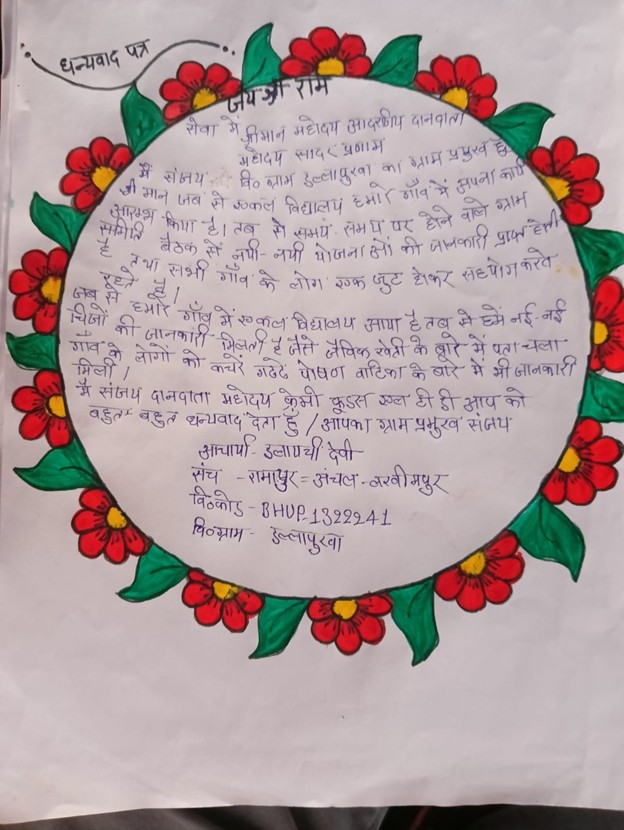 धन्यवाद पत्र
जय श्री राम
सेवा में श्रीमान महोदय आदरणीय दानदाता
महोदय सादर प्रणाम
मैं संजय वि० ग्राम डल्लापुरवा का ग्राम प्रमुख हूँ
श्री मान जब से एकल विद्यालय हमारे गाँव में अपना कार्य
आरम्भ किया है। तब से समय समय पर होने वाले ग्राम
समिति बैठक से नयी-नयी योजनाओं की जानकारी प्राप्त होती
है तथा सभी गाँव के लोग एक जुट होकर सहयोग करते
रहते हैं।
जब से हमारे गाँव में एकल विद्यालय आया है तब से हमें नई नई
चिजों की जानकारी मिलती है जैसे जैविक खेती के बारे में पता चला
गाँव के लोगों को कचरें गढढे पोषण वाटिका के बारे में भी जानकारी
मिली।
मैं संजय दानदाता महोदय क्रेमी फूडस एल टी डी आप को
बहुत बहुत धन्यवाद देता हुँ / आपका ग्राम प्रमुख संजय
आचार्या- इलायची देवी
संच - रामापुर = अंचल - लखीमपुर
वि०कोड - BHUP-1322241
वि०ग्राम - डल्लापुरवा